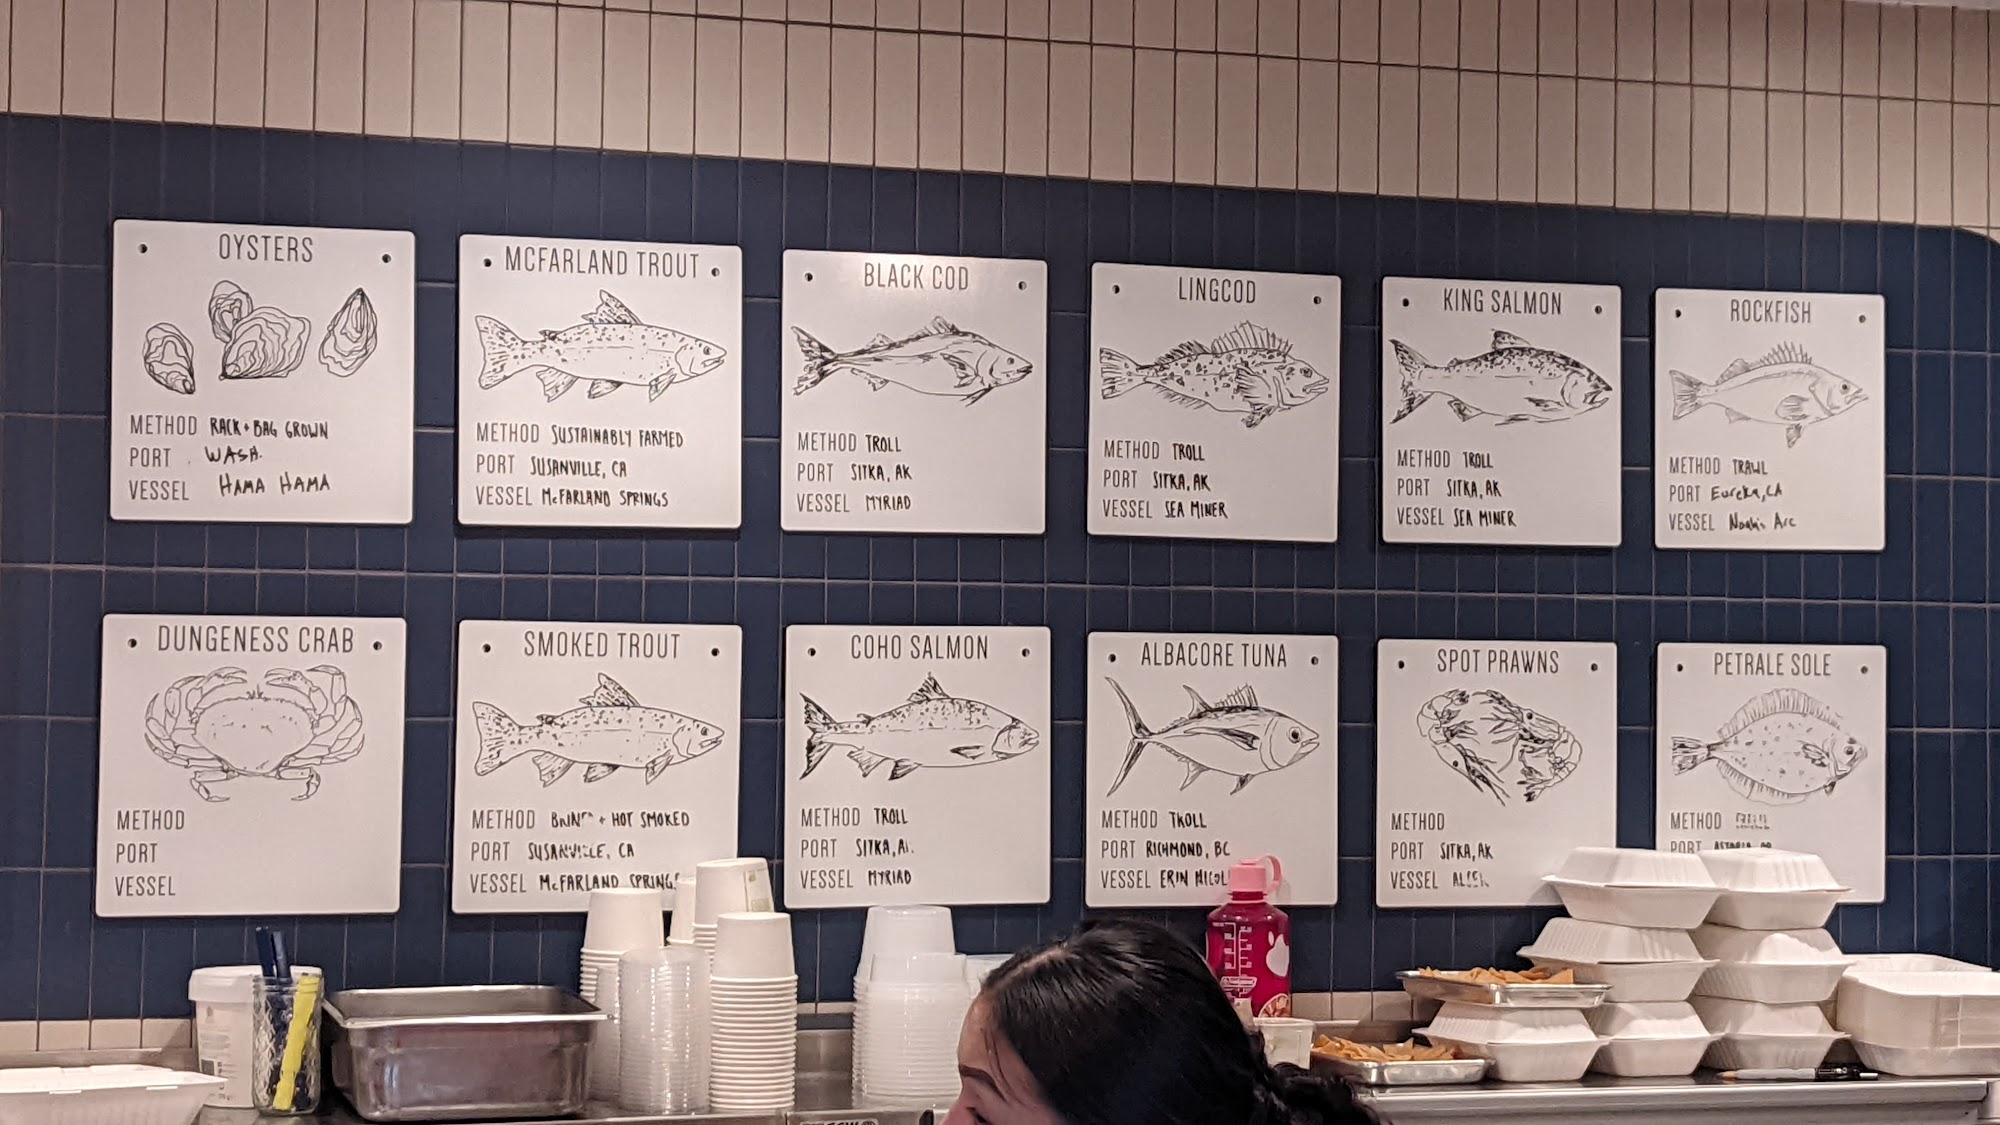 OYSTERS
METHOD RACK + BAG GROWN
PORT WASH.
VESSEL HAMA HAMA
MCFARLAND TROUT
METHOD SUSTAINABLY FARMED
PORT SUSANVILLE, CA
VESSEL McFARLAND SPRINGS
BLACK COD
METHOD TROLL
PORT SITKA, AK
VESSEL MYRIAD
LINGCOD
METHOD TROLL
PORT SITKA, AK
VESSEL SEA MINER
KING SALMON
METHOD TROLL
PORT SITKA, AK
VESSEL SEA MINER
ROCKFISH
METHOD TRAWL
PORT Eureka, CA
VESSEL Noah's Arc
DUNGENESS CRAB
METHOD
PORT
VESSEL
SMOKED TROUT
METHOD + HOT SMOKED
PORT SUSANVILLE, CA
VESSEL McFARLAND SPRINGS
COHO SALMON
METHOD TROLL
PORT SITKA,
VESSEL MYRIAD
ALBACORE TUNA
METHOD TROLL
PORT RICHMOND, BC
VESSEL ERIN
SPOT PRAWNS
METHOD
PORT SITKA, AK
VESSEL
PETRALE SOLE
METHOD
PORT